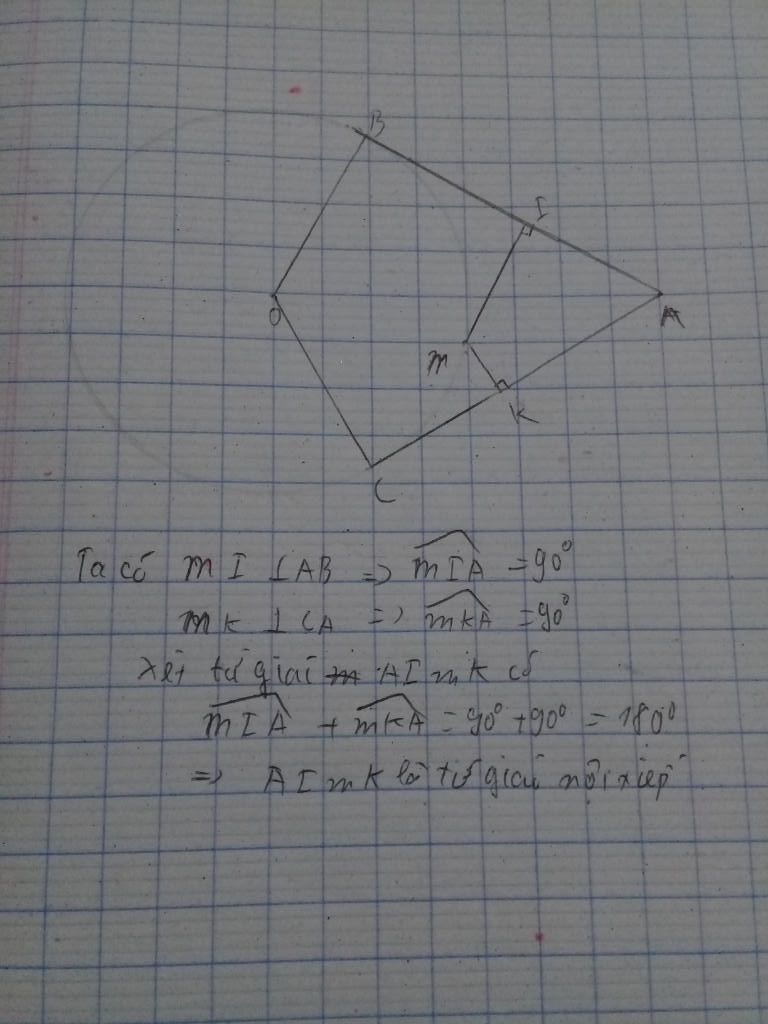 B
I
O
A
m
K
C
Ta có m I ⊥ AB => mIA = 90°
mK ⊥ CA => mKA = 90°
xét tứ giai AI m K có
mIA + mKA = 90° + 90° = 180°
=> AI m K là tứ giai nội xiếp